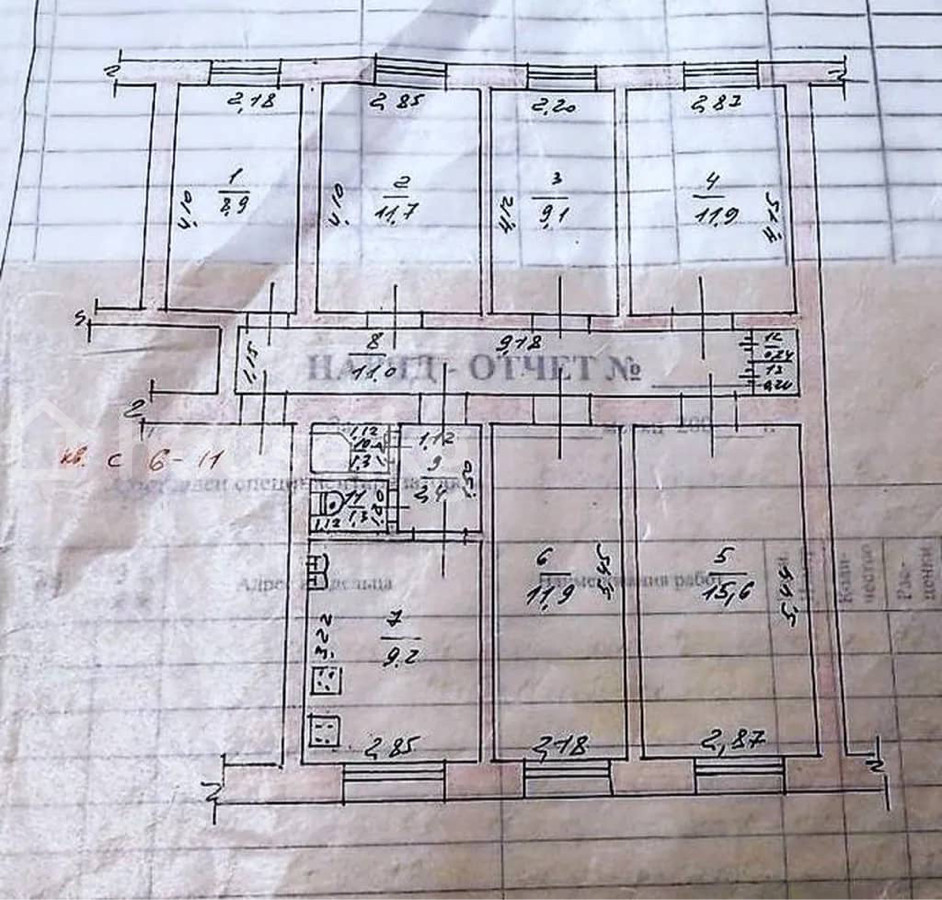 2,18 2,85 2,20 2,87
1 2 3 4
4,10 8,9 4,10 11,7 4,12 9,1 11,9 4,15
8 9,18
1,15 11,0
13
НАРЯД - ОТЧЕТ №
200 г.
кв. с 6-11
1,12 1,12
9
1,3 2,4
11
1,3
1,12
Адрес владельца Наименования работ
6 5
11,9 5,45 15,6 5,45
7
3,22 9,2
2,85 2,18 2,87